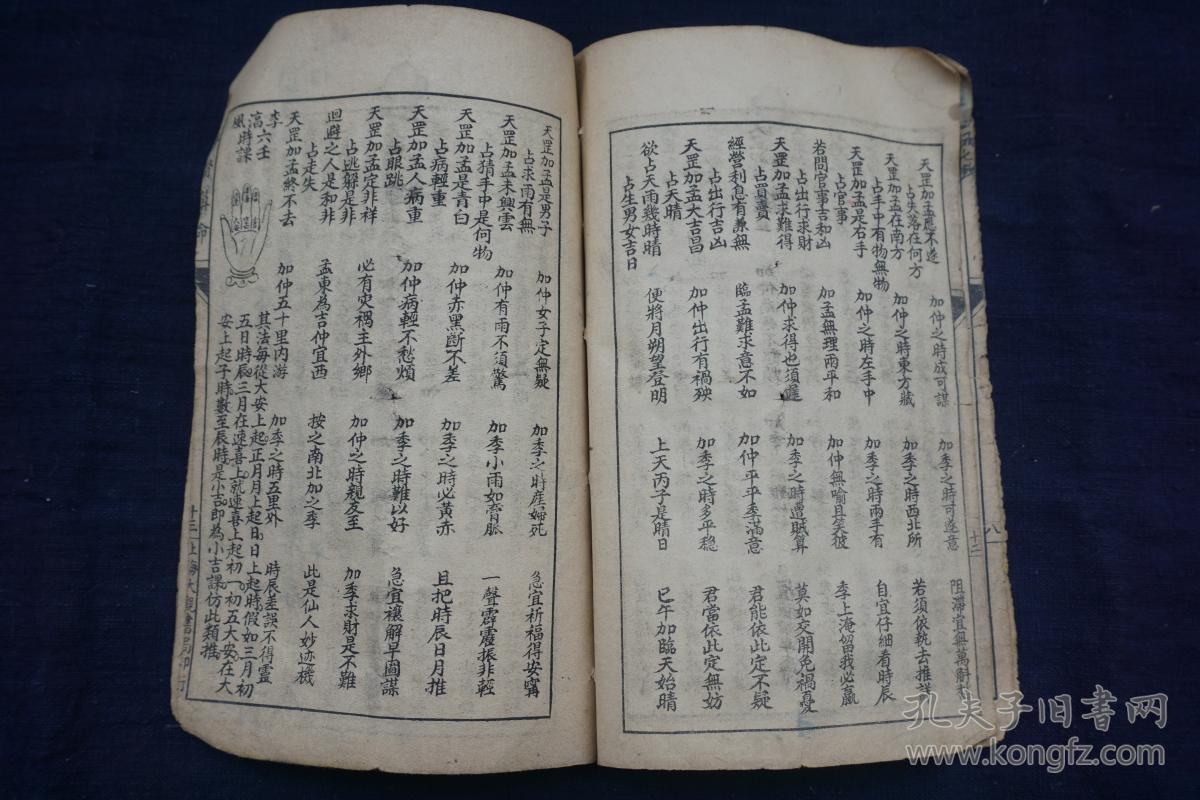 天罡加孟應不遂　加仲之時成可謀　加季之時可遂意　阻滯宜無萬
占失落在何方
天罡加孟在南方　加仲之時東方藏　加季之時西北所　若須依執去推詳
占手中有物無物
天罡加孟是右手　加仲之時左手中　加季之時兩手有　自宜仔細看時辰
占官事
若問官事吉和凶　加孟無理兩平和　加仲無喻且笑彼　季上淹留我必贏
占出行求財
天罡加孟求難得　加仲求得也須遲　加季之時遭賊算　莫如交開免禍憂
占買賣
經營利息有兼無　臨孟難求意不如　加仲平平季滿意　君能依此定不疑
占出行吉凶
天罡加孟大吉昌　加仲出行有禍殃　加季之時多平穩　君當依此定無妨
占天晴
欲占天雨幾時晴　便將月朔望登明　上天丙子是晴日　巳午加臨天始晴
占生男女吉日
十二
天罡加孟是男子　加仲女子定無疑　加季之時產婦死　急宜祈福得安寧
占求雨有無
天罡加孟未興雲　加仲有雨不須驚　加季小雨如膏脈　一聲霹靂振非輕
占猜手中是何物
天罡加孟是青白　加仲赤黑斷不差　加季之時必黃赤　且把時辰日月推
占病輕重
天罡加孟人病重　加仲病輕不愁煩　加季之時難以好　急宜禳解早圖謀
占眼跳
天罡加孟定非祥　必有災禍主外鄉　加仲之時親友至　加季求財是不難
占逃躲是非
迴避之人是和非　孟東為吉仲宜西　按之南北加之季　此是仙人妙迹機
占走失
天罡加孟終不去　加仲五十里內游　加季之時五里外　時辰差誤不得靈
李淳風六壬時課
其法每從大安上起正月月上起日日上起時假如三月初
五日時辰三月在速喜上就速喜上起初一初五大安在大
安上起子時數至辰時是小吉即為小吉課仿此類推
十三　上海大觀書局印行
孔夫子旧书网
www.kongfz.com